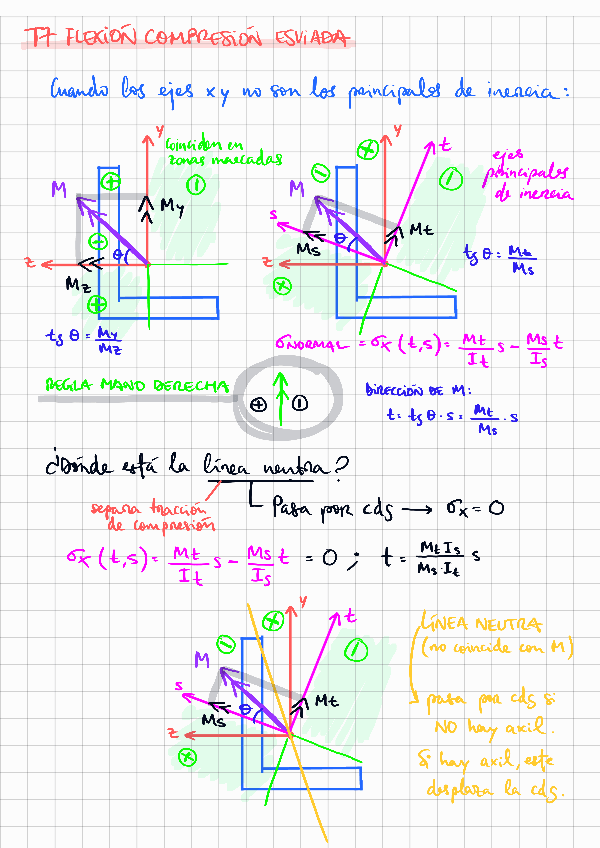 T7 FLEXIÓN COMPRESIÓN ESVIADA
Cuando los ejes x y no son los principales de inercia:
y
Coinciden en
zonas marcadas
+
-
M
My
+
θ
z
Mz
+
tg θ = My/Mz
y
t
-
+
-
ejes
principales
de inercia
M
s
Mt
Ms
θ
z
+
tg θ = Mt/Ms
σNORMAL = σx (t,s) = Mt/It s - Ms/Is t
REGLA MANO DERECHA
+ -
DIRECCIÓN DE M:
t = tg θ · s = Mt/Ms · s
¿Dónde está la línea neutra?
separa tracción
de compresión
Pasa por cdg → σx = 0
σx (t,s) = Mt/It s - Ms/Is t = 0 ; t = Mt Is/Ms · It s
y
t
-
+
-
M
s
Ms
Mt
θ
z
+
LÍNEA NEUTRA
(no coincide con M)
pasa por cdg si
NO hay axil.
Si hay axil, este
desplaza la cdg.